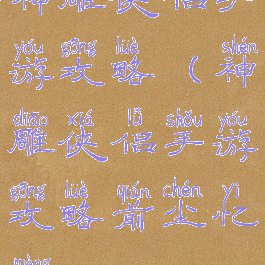 yóu gōng lüè shén
游攻略(神
diāo xiá lǚ shǒu yóu
雕侠侣手游
gōng lüè qián chén yì
攻略前尘忆